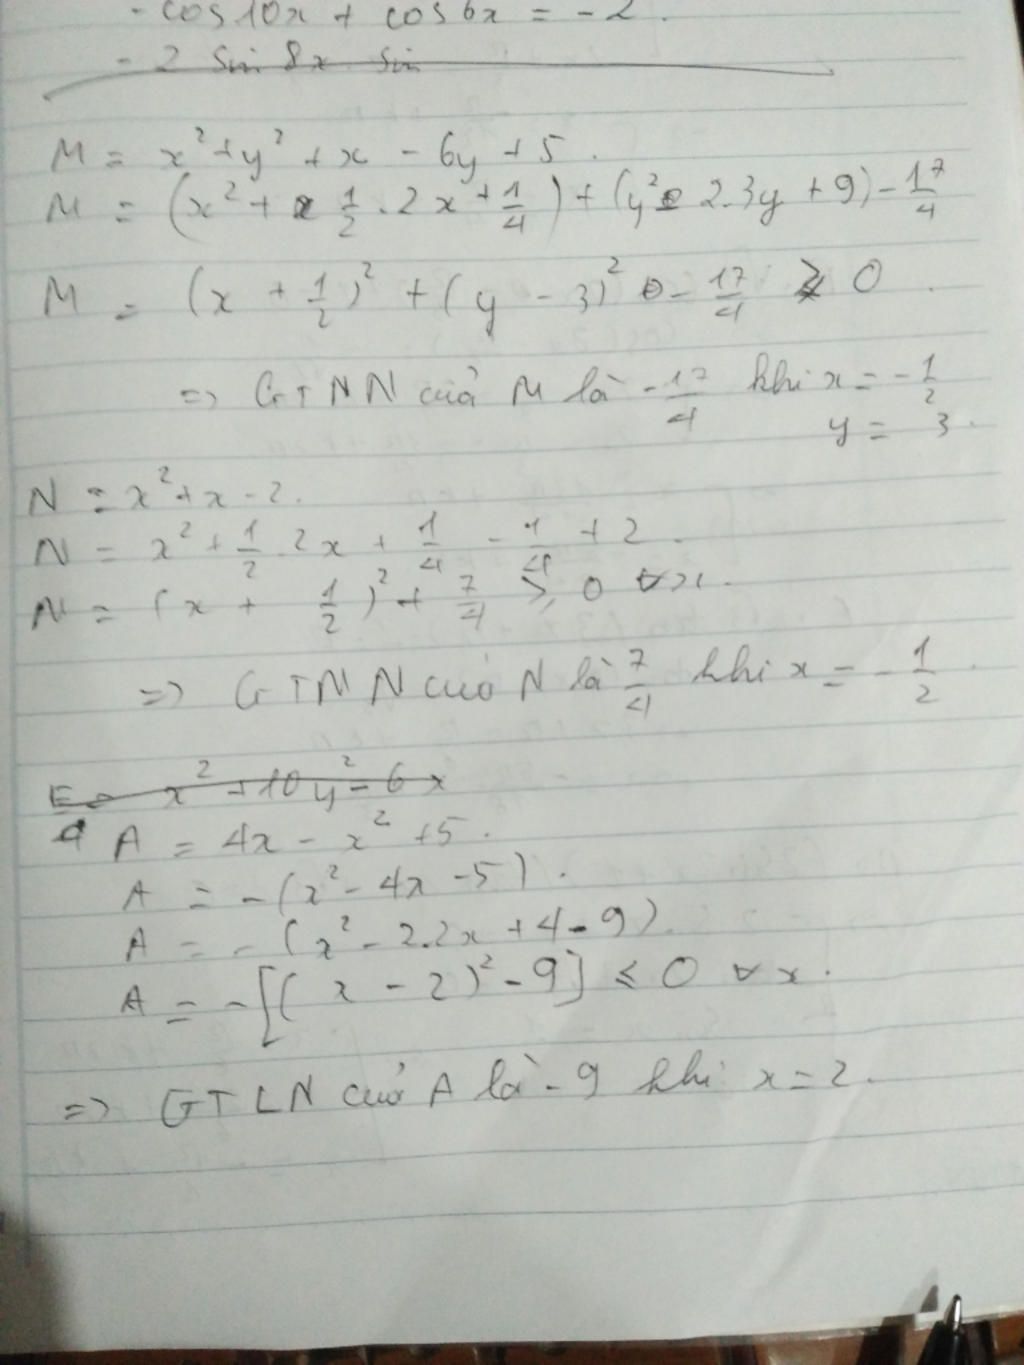 - cos10x + cos6x = -2.
- 2 sin 8x sin
M = x² + y² + x - 6y + 5.
M = (x² + 2 1/2 . 2x + 1/4) + (y² - 2.3y + 9) - 17/4
M = (x + 1/2)² + (y - 3)² - 17/4 ≥ 0.
=> GTNN của M là -17/4 khi x = -1/2
y = 3.
N = x² + x - 2.
N = x² + 1/2 . 2x + 1/4 - 1/4 + 2.
N = (x + 1/2)² + 7/4 ≥ 0 ∀x.
=> GTNN của N là 7/4 khi x = -1/2.
E = x² + 10y² - 6x
A = 4x - x² + 5.
A = -(x² - 4x - 5).
A = -(x² - 2.2x + 4 - 9).
A = -[(x - 2)² - 9] ≤ 0 ∀x.
=> GTLN của A là -9 khi x = 2.